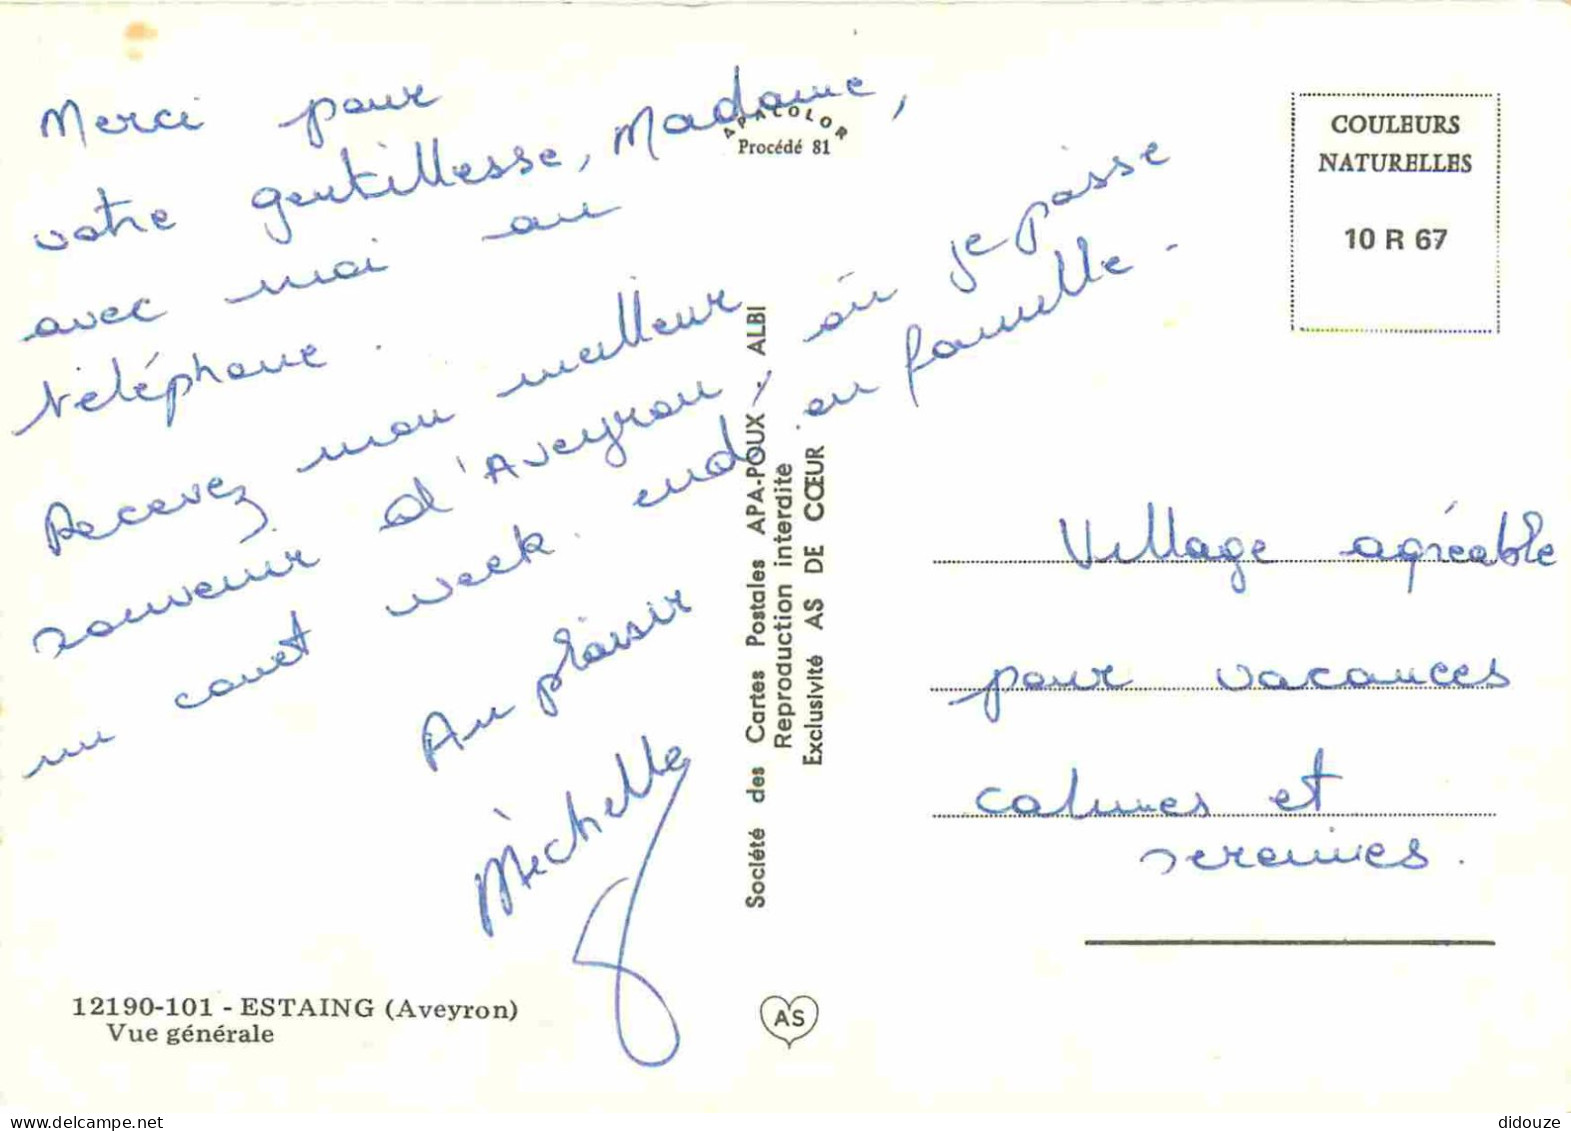 Merci pour
votre gentillesse, Madame,
avec moi au
téléphone.
Recevez mon meilleur
souvenir d'Aveyron, où je passe
un court week-end en famille.
Au plaisir
Michelle
12190-101 - ESTAING (Aveyron)
Vue générale
APACOLOR
Procédé 81
Société des Cartes Postales APA-POUX - ALBI
Reproduction interdite
Exclusivité AS DE CŒUR
AS
COULEURS
NATURELLES
10 R 67
Village agréable
pour vacances
calmes et
sereines.
didouze